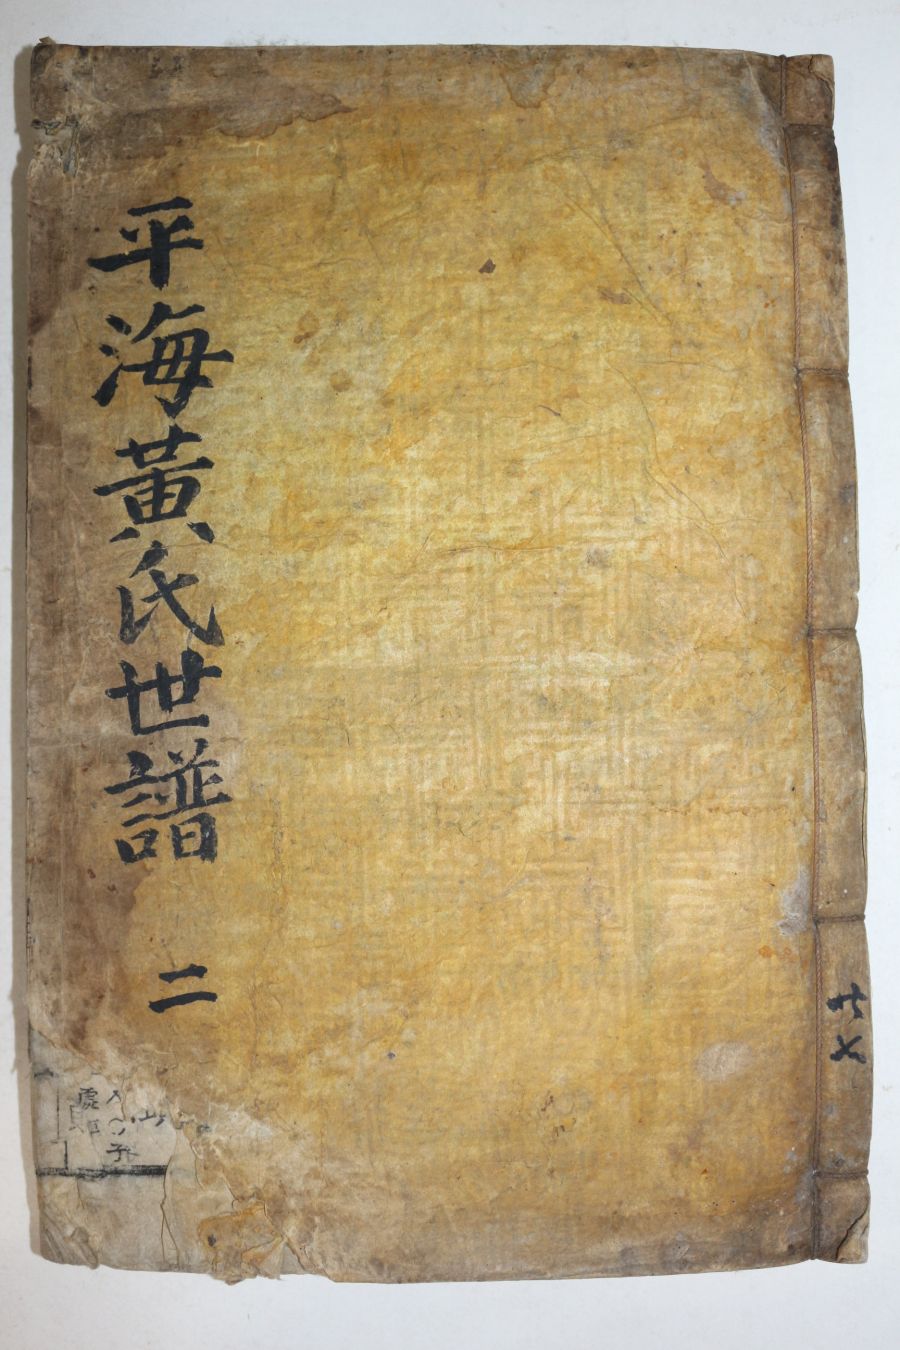 平海黃氏世譜 二